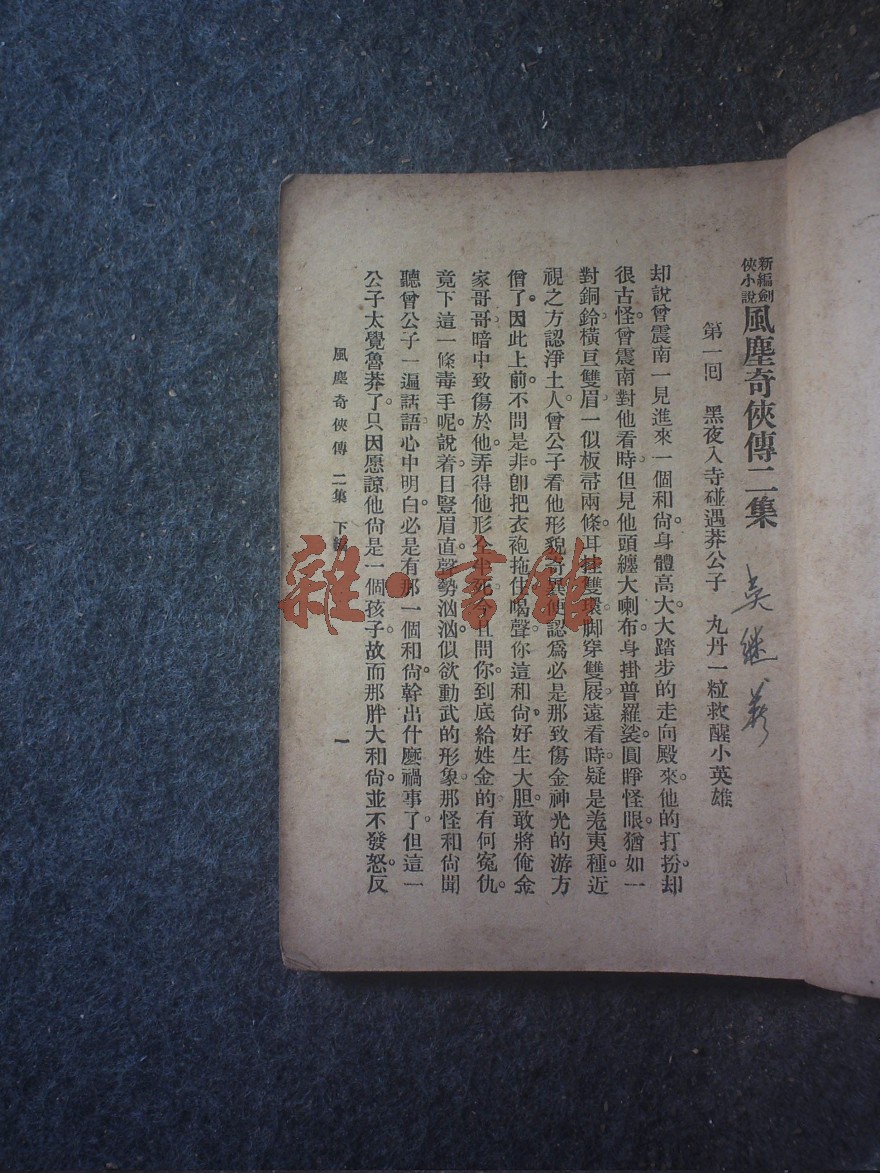 新編劍俠小說
風塵奇俠傳二集
吳継
第一回　黑夜入寺碰遇莽公子　九丹一粒救醒小英雄
却說曾震南一見進來一個和尙。身體高大。大踏步的走向殿來。他的打扮。却
很古怪。曾震南對他看時。但見他頭纏大喇布。身掛普羅裟。圓睜怪眼。猶如一
對銅鈴。橫亘雙眉。一似板帚兩條。耳挂雙環。脚穿雙屐。遠看時。疑是羌夷種。近
視之方認淨土人。曾公子看他形貌奇異。便認爲必是那致傷金神光的游方
僧了。因此上前。不問是非。卽把衣袍拖住。喝聲你這和尙。好生大胆。敢將俺金
家哥哥。暗中致傷於他。弄得他形全半死。今且問你。到底給姓金的有何寃仇。
竟下這一條毒手呢。說着目豎眉直。聲勢汹汹。似欲動武的形象。那怪和尙聞
聽曾公子一遍話語。心中明白。必是有那一個和尙。幹出什麽禍事了。但這一
公子太覺魯莽了。只因愿諒他尙是一個孩子。故而那胖大和尙。並不發怒。反
風塵奇俠傳　二集　下編　一
雜·書館